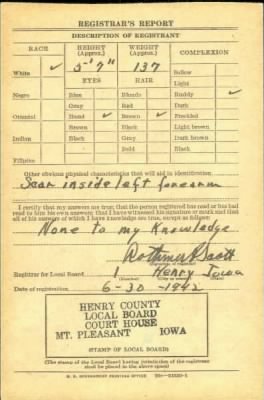 REGISTRAR'S REPORT
DESCRIPTION OF REGISTRANT
RACE HEIGHT (Approx.) WEIGHT (Approx.) COMPLEXION
White ✓ 5'7" 137 Sallow
EYES HAIR Light
Negro Blue Blonde Ruddy ✓
Gray Red Dark
Oriental Hazel ✓ Brown ✓ Freckled
Brown Black Light brown
Indian Black Gray Dark brown
Bald Black
Filipino
Other obvious physical characteristics that will aid in identification
Scar inside left forearm
I certify that my answers are true; that the person registered has read or has had
read to him his own answers; that I have witnessed his signature or mark and that
all of his answers of which I have knowledge are true, except as follows:
None to my Knowledge
Scott
(Signature of registrar)
Registrar for Local Board 1 Henry Iowa
Date of registration 6-30-1942
HENRY COUNTY
LOCAL BOARD
COURT HOUSE
MT. PLEASANT IOWA
(STAMP OF LOCAL BOARD)
(The stamp of the Local Board having jurisdiction of the registrant
shall be placed in the above space)
U. S. GOVERNMENT PRINTING OFFICE